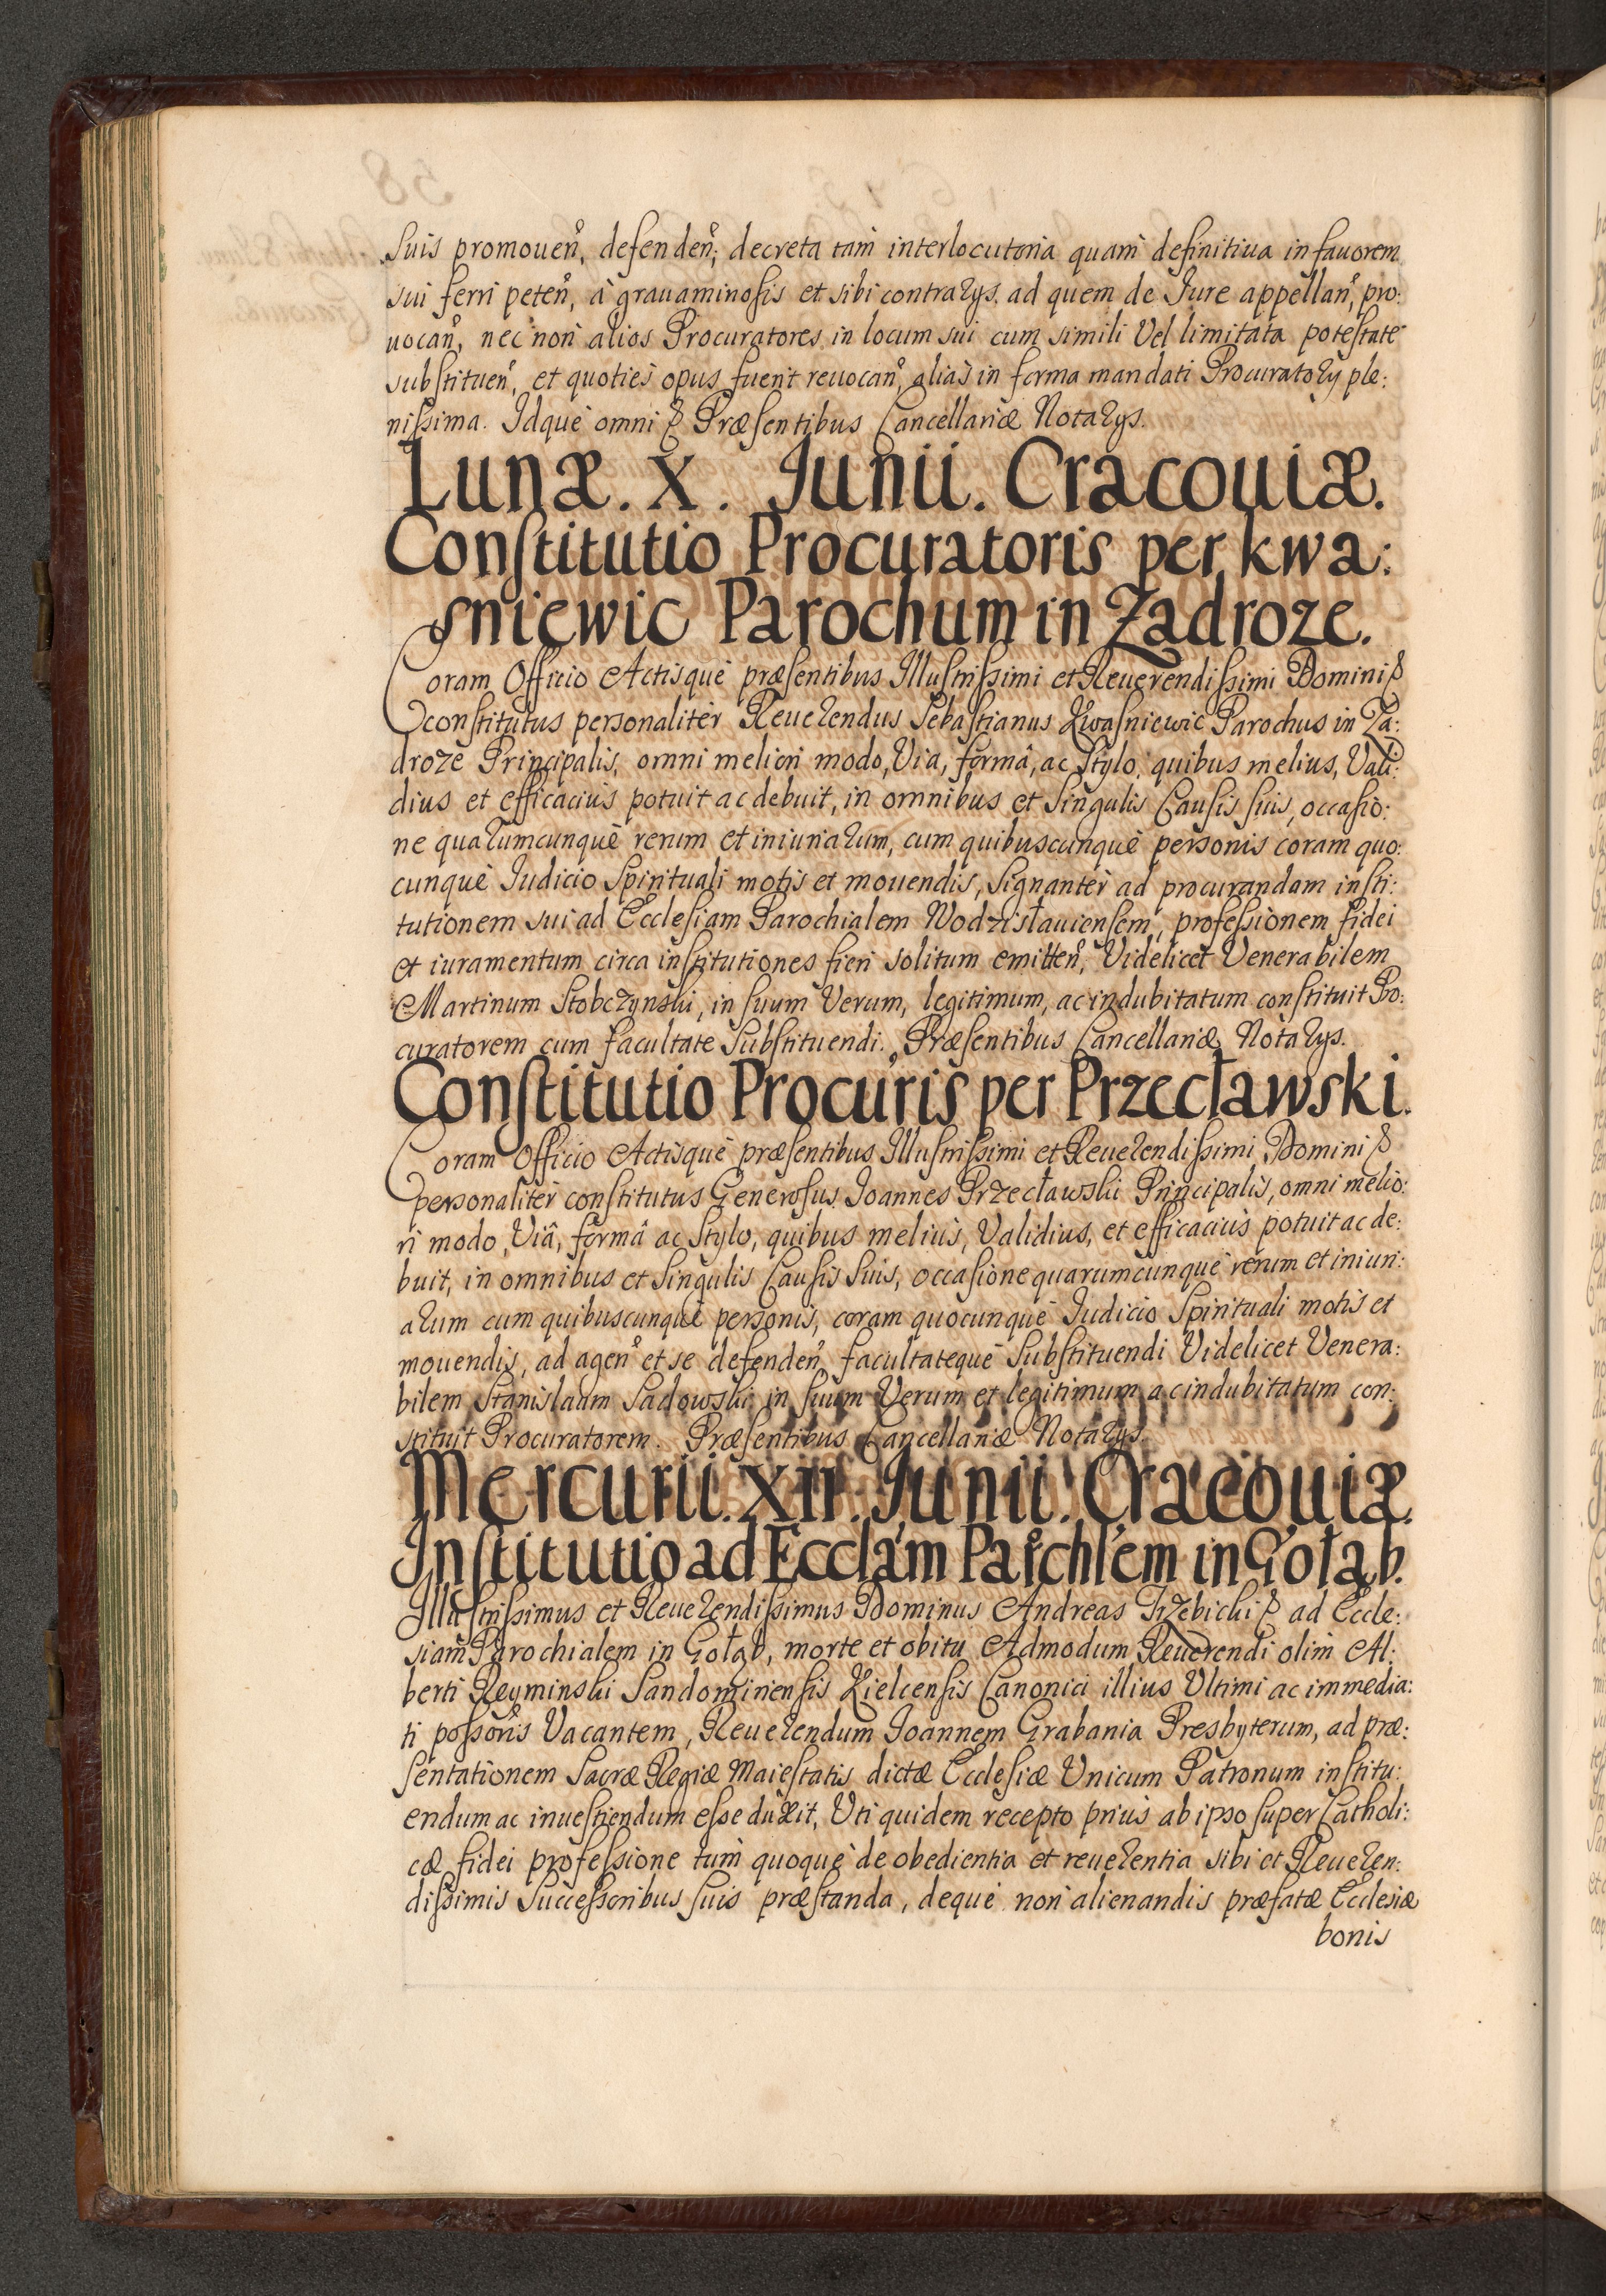 suis promouen̊, defenden̊; decreta tam̀ interlocutoria quam̀ definitiua in fauorem
sui ferri peten̊, à grauaminosis et sibi contrarijs. ad quem de Iure appellan̊, pro:
uocan̊, nec non̄ alios Procuratores in locum sui cum simili Vel limitata potestate
substituen̊, et quoties opus fuerit reuocan̊, aliàs in forma mandati Procuratorij ple:
nissima. Idquè omni & Præsentibus Cancellariæ Notarijs.
Lunæ. X. Junii. Cracouiæ.
Constitutio Procuratoris per kwa:
sniewic Parochum in Zadroze.
Coram Officio Actisquè præsentibus Illustrissimi et Reuerendissimi Domini &
constitutus personalitèr Reuerendus Sebastianus Kwasniewic Parochus in Za:
droze Principalis, omni meliori modo, Via, formâ, ac Stylo, quibus melius, Vali:
dius et efficaciùs potuit ac debuit, in omnibus et Singulis Causis suis, occasio:
ne quarumcunquè rerum et iniuriarum, cum quibuscunquè personis coram quo:
cunquè Iudicio Spirituali motis et mouendis, Signantèr ad procurandam insti:
tutionem sui ad Ecclesiam Parochialem Wodzisłauiensem, professionem fidei
et iuramentum circa institutiones fieri solitum emitten̊, Videlicet Venerabilem
Martinum Stobczynski, in suum Verum, legitimum, ac indubitatum constituit Pro:
curatorem cum facultate Substituendi. Præsentibus Cancellariæ Notarijs.
Constitutio Procu̇ris per Przecławski.
Coram Officio Actisquè præsentibus Illustrissimi et Reuerendissimi Domini &
personalitèr constitutus Generosus Ioannes Przecławski Principalis, omni melio:
ri modo, Viâ, formâ ac Stylo, quibus meliùs, Validius, et efficaciùs potuit ac de:
buit, in omnibus et Singulis Causis suis, occasione quarumcunquè rerum et iniuri:
arum cum quibuscunquè personis, coram quocunquè Iudicio Spirituali motis et
mouendis, ad agen̊ et se defenden̊ facultatequè Substituendi Videlicet Venera:
bilem Stanislaum Sadowski in suum Verum et legitimum ac indubitatum con:
stituit Procuratorem. Præsentibus Cancellariæ Notarijs.
Mercurii. XII. Junii. Cracouiæ.
Institutio ad Eccla̕m Par̊chle̕m in Gołąb.
Illustrissimus et Reuerendissimus Dominus Andreas Trzebicki & ad Eccle:
siam Parochialem in Gołąb, morte et obitu Admodum Reuerendi olim Al:
berti Reyminski Sandomiriensis Kielcensis Canonici illius Vltimi ac immedia:
ti posso̊ris Vacantem, Reuerendum Ioannem Grabania Presbyterum, ad præ:
sentationem Sacræ Regiæ Maiestatis dictæ Ecclesiæ Vnicum Patronum institu:
endum ac inuestiendum esse duxit, Vti quidem recepto priùs ab ipso super Catholi:
cæ fidei professione tùm quoquè de obedientia et reuerentia sibi et Reueren:
dissimis Successoribus suis præstanda, dequè non̄ alienandis præfatæ Ecclesiæ
bonis